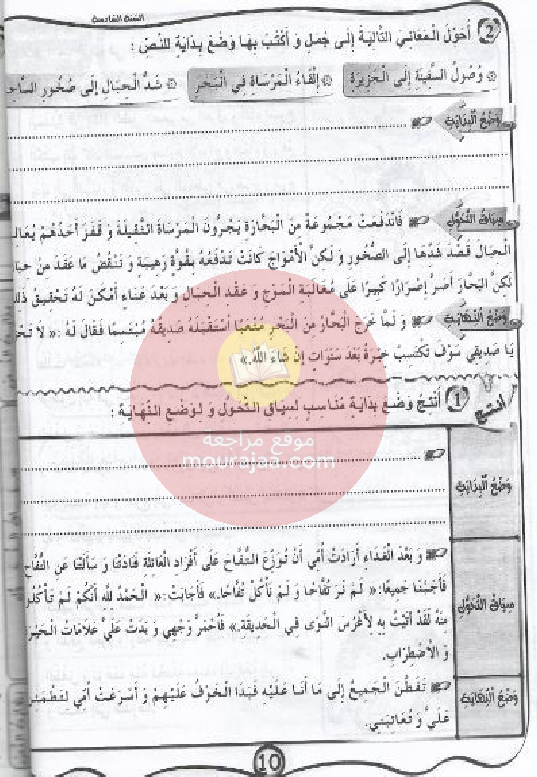 السنة السادسة
2 أُحَوِّلُ المَعَانِيَ التَّالِيَةَ إِلَى جُمَلٍ وَ أَكْتُبُ بِهَا وَضْعَ بِدَايَةٍ لِلنَّصِّ :
وُصُولُ السَّفِينَةِ إِلَى الْجَزِيرَةِ إِلْقَاءُ الْمَرْسَاةِ فِي الْبَحْرِ شَدُّ الْحِبَالِ إِلَى صُخُورِ
وَضْعُ الْبِدَايَةِ
سِيَاقُ التَّحَوُّلِ فَانْدَفَعَتْ مَجْمُوعَةٌ مِنَ الْبَحَّارَةِ يَجُرُّونَ الْمَرْسَاةَ الثَّقِيلَةَ وَ قَفَزَ أَحَدُهُمْ
الْحِبَالَ قَصْدَ شَدِّهَا إِلَى الصُّخُورِ وَ لَكِنَّ الْأَمْوَاجَ كَانَتْ تَدْفَعُهُ بِقُوَّةٍ رَهِيبَةٍ وَ تَنْقُضُ مَا عَقَدَ مِنْ
لَكِنَّ الْبَحَّارَ أَصَرَّ إِصْرَارًا كَبِيرًا عَلَى مُغَالَبَةِ الْمَوْجِ وَ عَقْدِ الْحِبَالِ وَ بَعْدَ عَنَاءٍ أَمْكَنَ لَهُ تَحْقِيقُ
وَضْعُ النِّهَايَةِ وَ لَمَّا خَرَجَ الْبَحَّارُ مِنَ الْبَحْرِ مُتْعَبًا اسْتَقْبَلَهُ صَدِيقُهُ مُبْتَسِمًا فَقَالَ لَهُ :« لَا
يَا صَدِيقِي سَوْفَ تَكْتَسِبُ خِبْرَةً بَعْدَ سَنَوَاتٍ إِنْ شَاءَ اللَّهُ.»
أُنْتِجُ 1 أُنْتِجُ وَضْعَ بِدَايَةٍ مُنَاسِبٍ لِسِيَاقِ التَّحَوُّلِ وَ لِوَضْعِ النِّهَايَةِ :
موقع مراجعة
mourajaa.com
وَضْعُ الْبِدَايَةِ
سِيَاقُ التَّحَوُّلِ
وَ بَعْدَ الْغَدَاءِ أَرَادَتْ أُمِّي أَنْ تُوَزِّعَ التُّفَّاحَ عَلَى أَفْرَادِ الْعَائِلَةِ فَنَادَتْنَا وَ سَأَلَتْنَا عَنِ التُّفَّاحِ
فَأَجَبْنَا جَمِيعًا:« لَمْ نَرَ تُفَّاحًا وَ لَمْ نَأْكُلْ تُفَّاحًا.» فَأَجَابَتْ:« الْحَمْدُ لِلَّهِ أَنَّكُمْ لَمْ تَأْكُلُوا
مِنْهُ لَقَدْ أَتَيْتُ بِهِ لِأَغْرِسَ النَّوَى فِي الْحَدِيقَةِ.» فَاحْمَرَّ وَجْهِي وَ بَدَتْ عَلَيَّ عَلَامَاتُ الْحَيْرَةِ
وَ الْاضْطِرَابِ.
وَضْعُ النِّهَايَةِ
تَفَطَّنَ الْجَمِيعُ إِلَى مَا أَنَا عَلَيْهِ فَبَدَا الْخَوْفُ عَلَيْهِمْ وَ أَسْرَعَتْ أُمِّي
عَلَيَّ وَ تُعَاتِبُنِي.
10